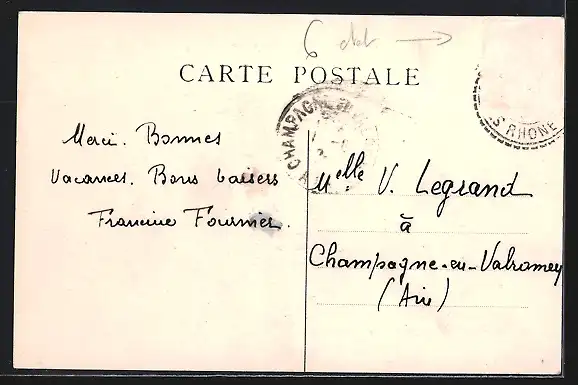 6 det →
CARTE POSTALE
CHAMPAGNE
S RHONE
Merci. Bonnes
Vacances. Bons baisers
Francine Fournier.
Melle V. Legrand
à
Champagne-en-Valromey
(Ain)